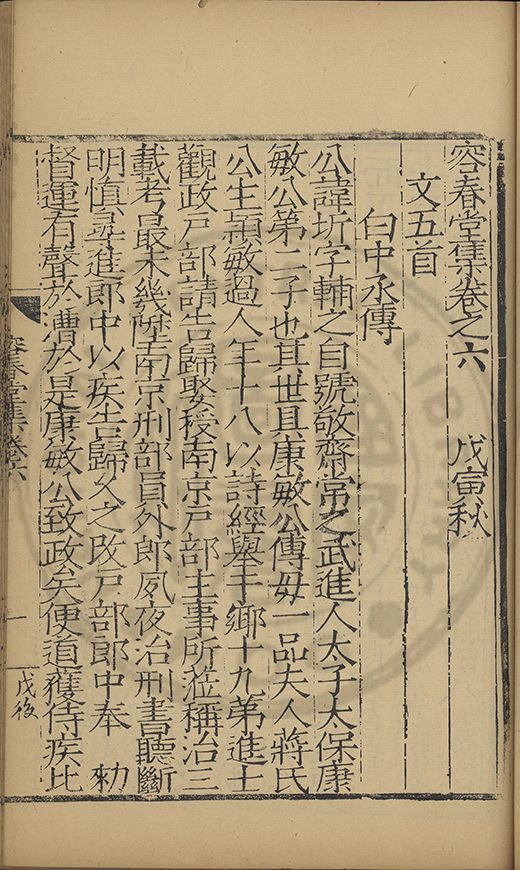 容春堂集卷之六　戊寅秋
文五首
白中丞傳
公諱圻字輔之自號敬齋常之武進人太子太保康
敏公第二子也其世具康敏公傳毋一品夫人蔣氏
公生穎敏過人年十八以詩經舉于鄉十九第進士
觀政戸部請告歸娶授南京戸部主事所蒞稱治三
載考最未幾陞南京刑部員外郎夙夜治刑書聽斷
明慎尋進郎中以疾告歸久之改戸部郎中奉　勑
督運有聲於漕於是康敏公致政矣便道獲侍疾比
容春堂集卷六
一
戊後